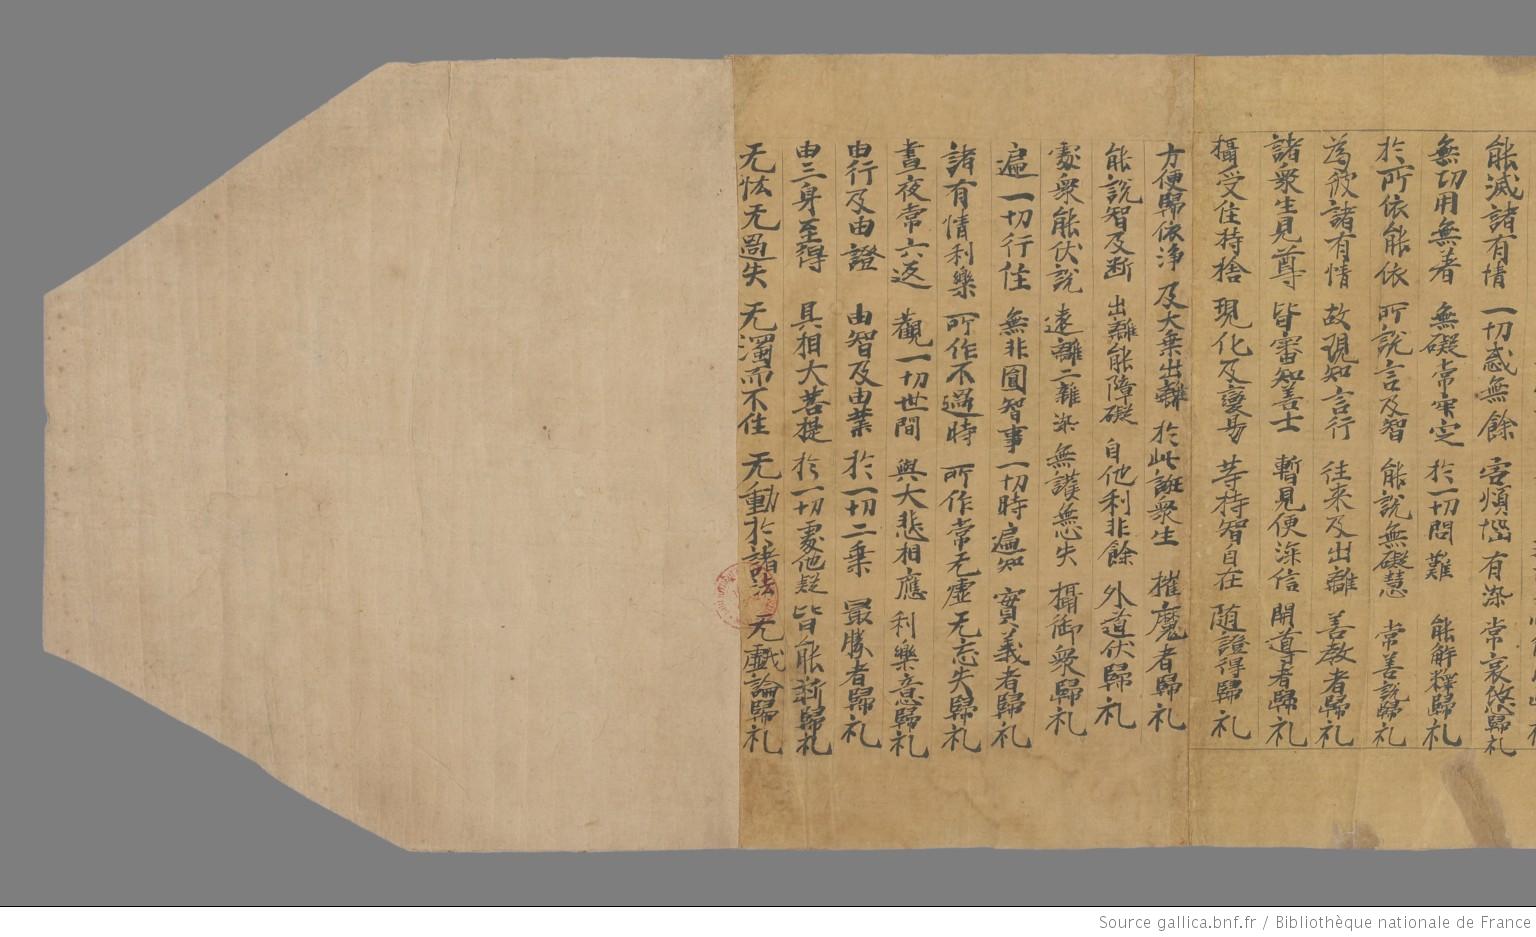 能滅諸有情 一切惑無餘 害煩惱有染 常哀愍歸礼
無功用無著 無礙常寂定 於一切問難 能解釋歸礼
於所依能依 所說言及智 能說無礙慧 常善說歸礼
為彼諸有情 故現知言行 往来及出離 善教者歸礼
諸衆生見尊 皆審知善士 暫見便深信 開導者歸礼
攝受住持捨 現化及變易 等持智自在 随證得歸礼
方便歸依淨 及大乗出離 於此誑衆生 摧魔者歸礼
能說智及断 出離能障礙 自他利非餘 外道伏歸礼
處衆能伏說 遠離二雜染 無護無忘失 攝御衆歸礼
遍一切行住 無非圓智事 一切時遍知 實義者歸礼
諸有情利樂 所作不過時 所作常无虚 无忘失歸礼
晝夜常六返 觀一切世間 與大悲相應 利樂意歸礼
由行及由證 由智及由業 於一切二乗 最勝者歸礼
由三身至得 具相大菩提 於一切處他疑 皆能断歸礼
无怯无過失 无濁而不住 无動於諸法 无戲論歸礼
Source gallica.bnf.fr / Bibliothèque nationale de France